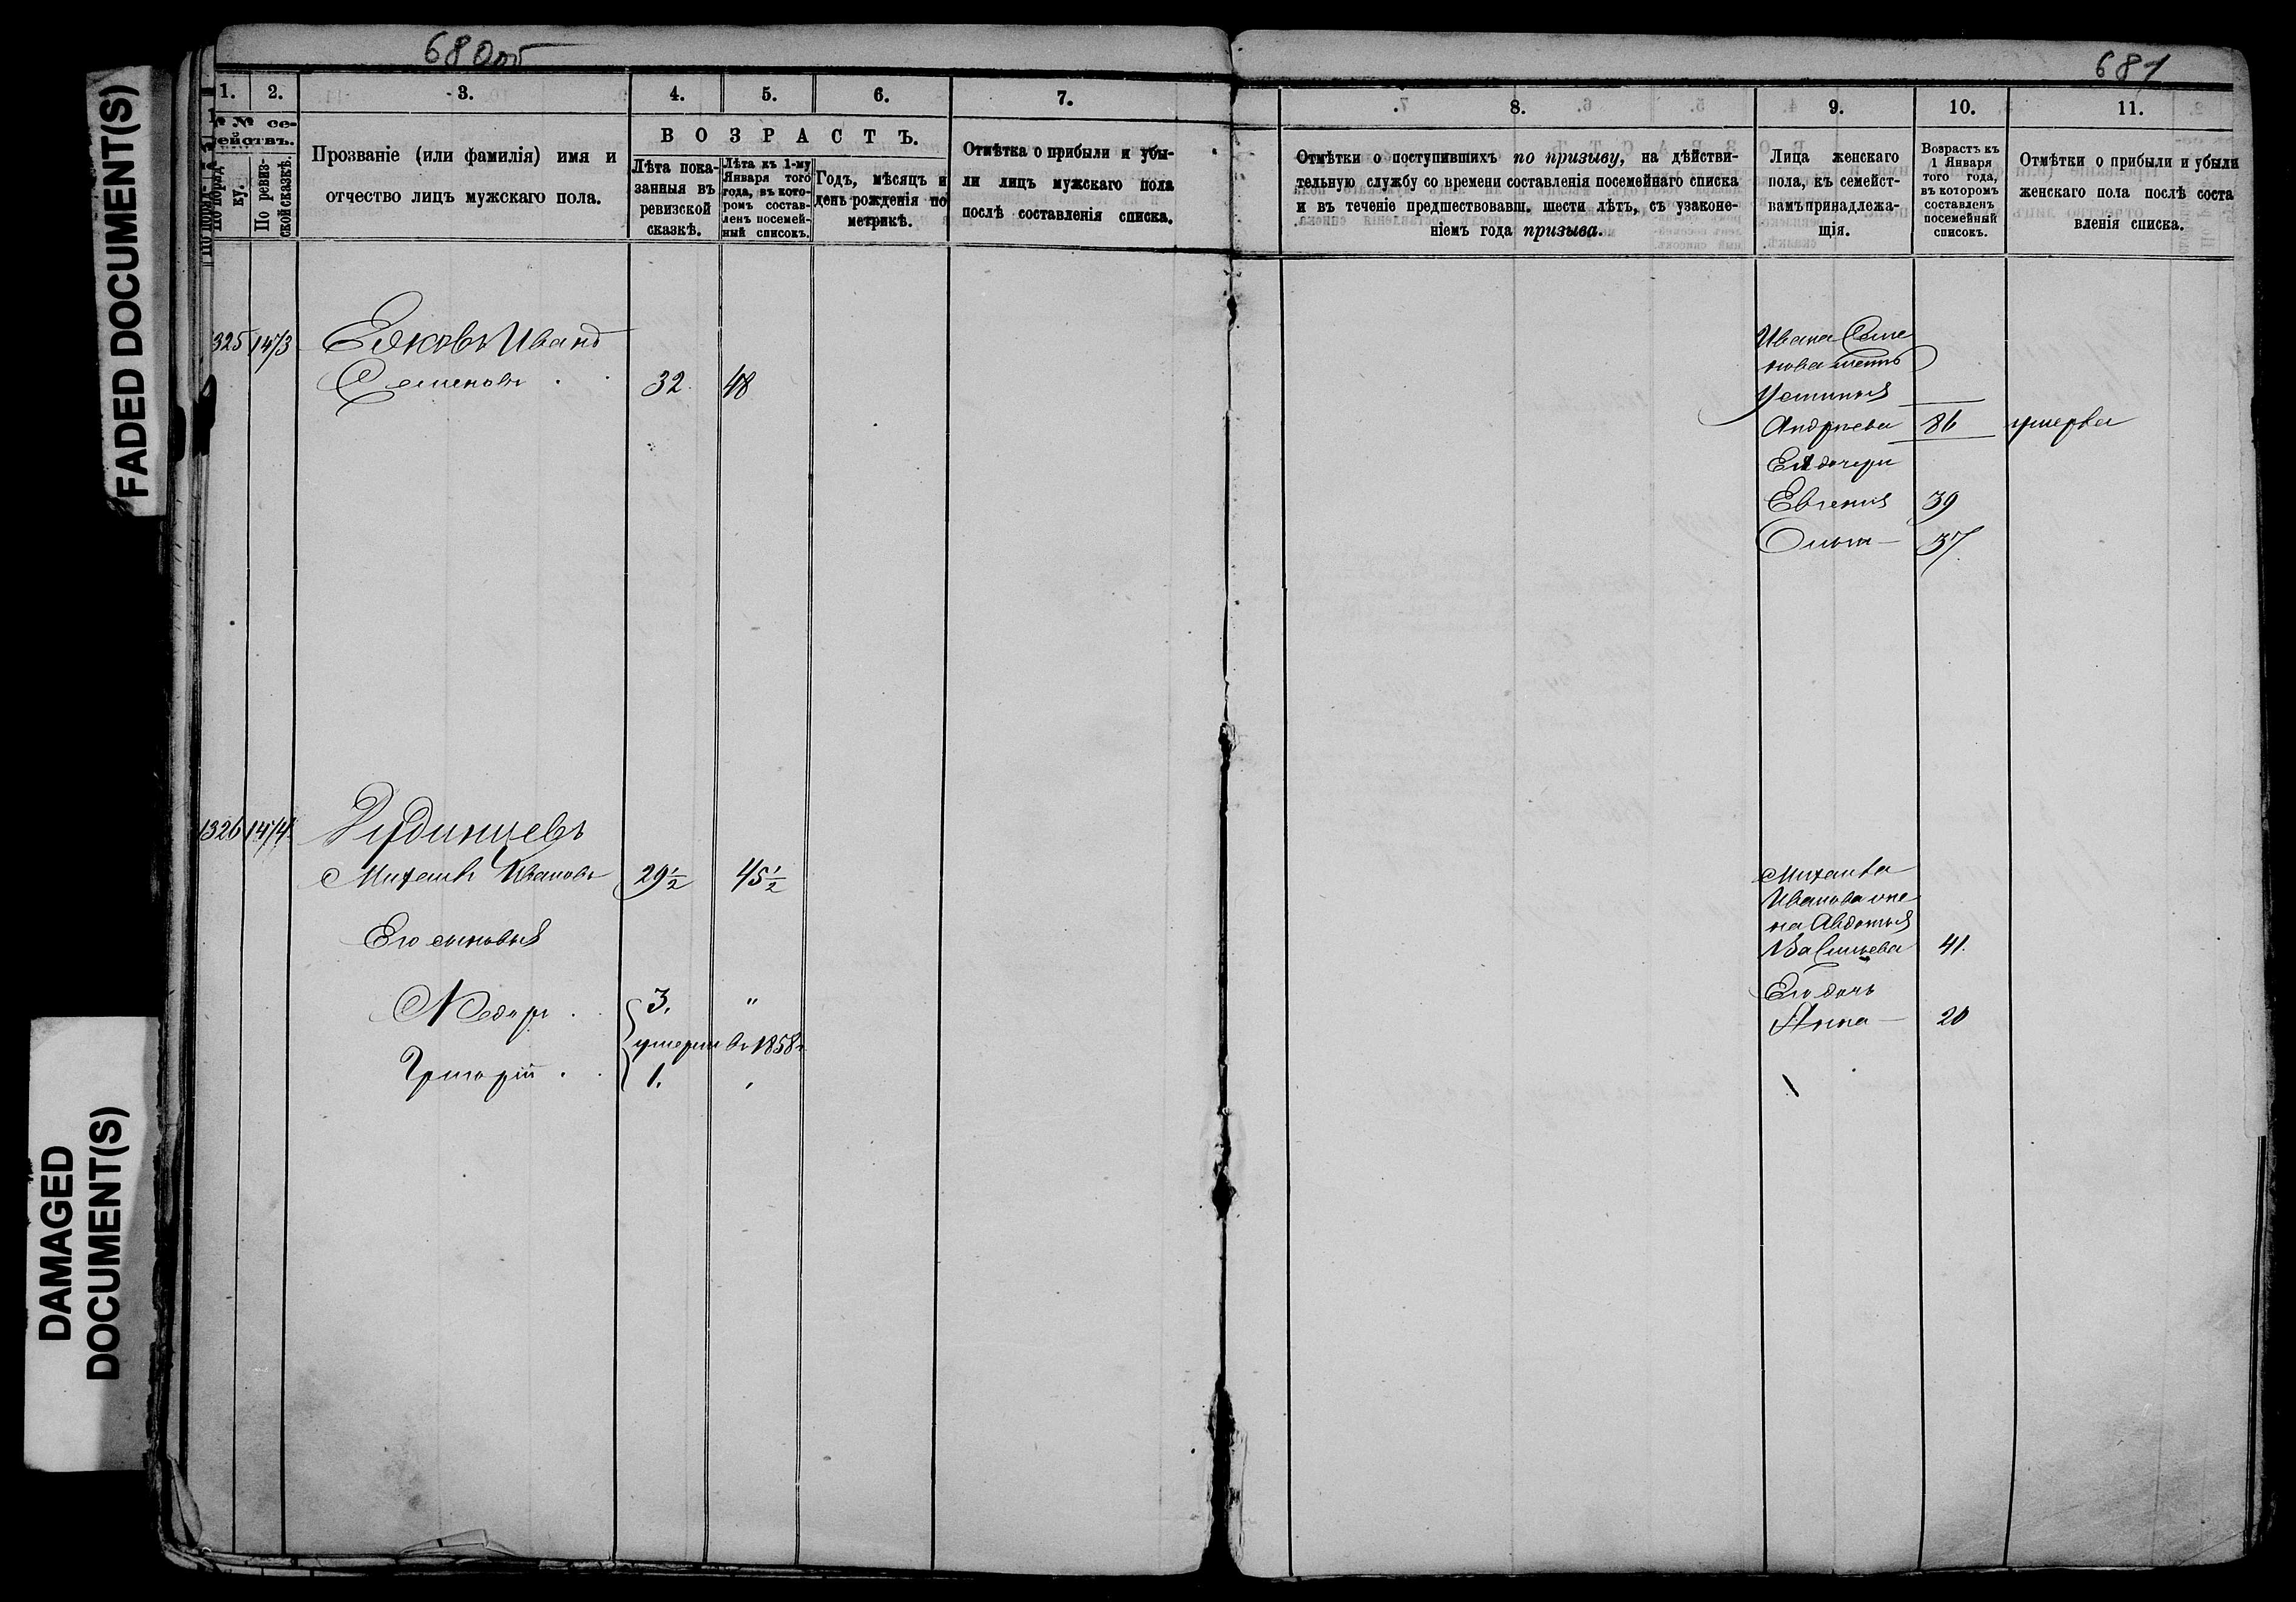 FADED DOCUMENT(S)
DAMAGED
DOCUMENT(S)
680об
1.
2.
3.
4.
5.
6.
7.
№№ се-
мействъ.
По поряд-
ку.
По ревиз-
ской сказкѣ.
Прозваніе (или фамилія) имя и
отчество лицъ мужскаго пола.
ВОЗРАСТЪ.
Лѣта пока-
занныя въ
ревизской
сказкѣ.
Лѣта къ 1-му
Января того
года, въ кото-
ромъ состав-
ленъ посемей-
ный списокъ.
Годъ, мѣсяцъ и
день рожденія по
метрикѣ.
Отмѣтка о прибыли и убы-
ли лицъ мужскаго пола
послѣ составленія списка.
325 1473 Иванъ
Семеновъ 32. 48
1326 1474
Михаилъ Ивановъ 29½ 45½
Его сыновья
Ѳедоръ 3. "
умерли въ 1858 г.
Григорій 1. "
681
8.
9.
10.
11.
Отмѣтки о поступившихъ по призыву, на дѣйстви-
тельную службу со времени составленія посемейнаго списка
и въ теченіе предшествовавш. шести лѣтъ, съ узаконе-
ніемъ года призыва.
Лица женскаго
пола, къ семейст-
вамъ принадлежа-
щія.
Возрастъ къ
1 Января
того года,
въ которомъ
составленъ
посемейный
списокъ.
Отмѣтки о прибыли и убыли
женскаго пола послѣ соста
вленія списка.
Ивана Семе
нова мать
Устинья
Андреева 86 умерла
Ея дочери
Евгенія 39
Ольга 37
Михаила
Иванова же
на Авдотья
Васильева 41.
Его дочь
Анна 20